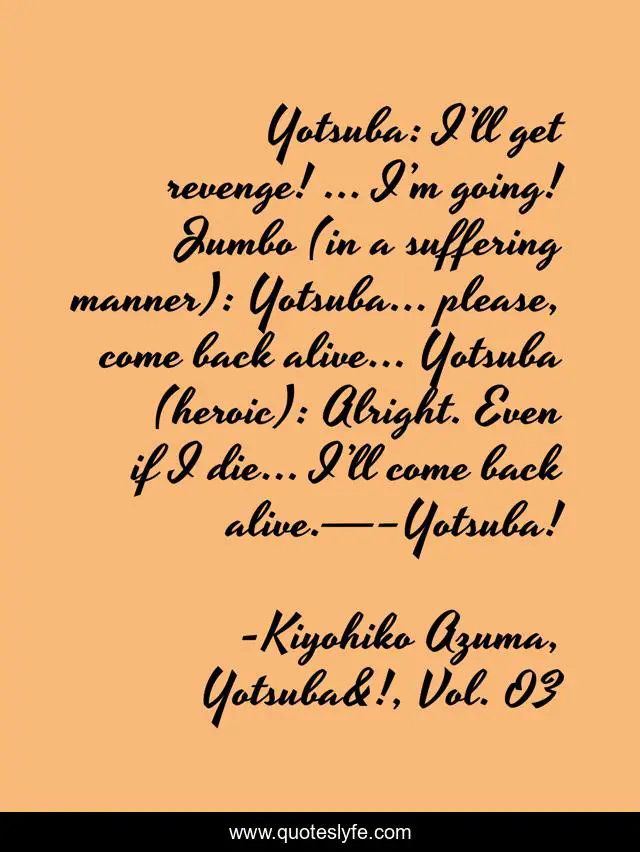 Yotsuba: I'll get
revenge! ... I'm going!
Jumbo (in a suffering
manner): Yotsuba... please,
come back alive... Yotsuba
(heroic): Alright. Even
if I die... I'll come back
alive.—–Yotsuba!
-Kiyohiko Azuma,
Yotsuba&!, Vol. 03
www.quoteslyfe.com